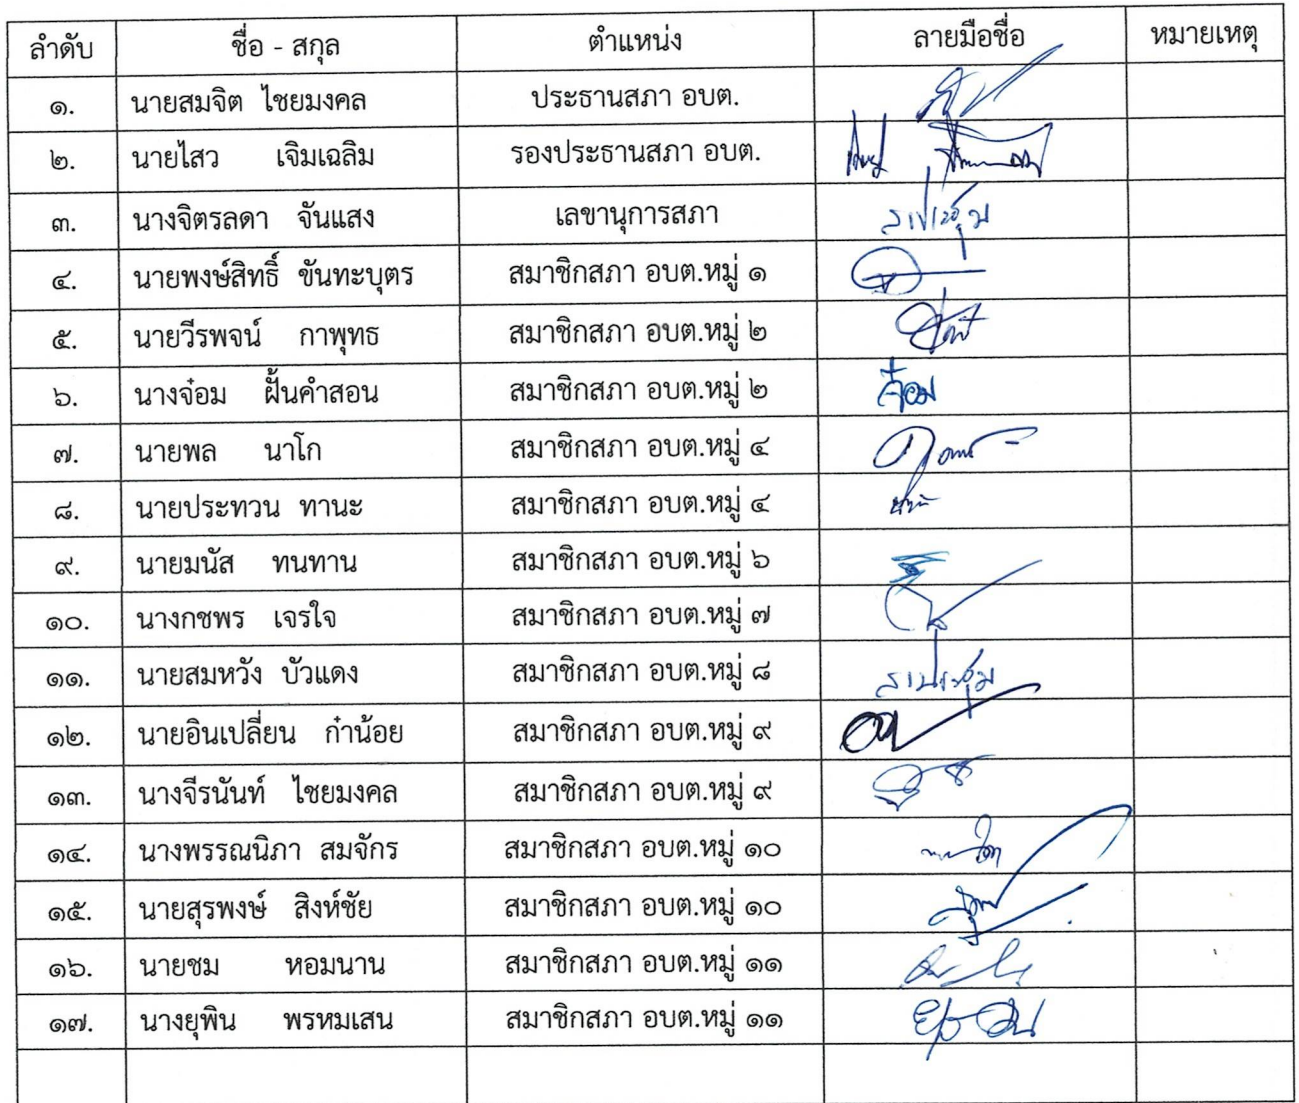 ลำดับ ชื่อ - สกุล ตำแหน่ง ลายมือชื่อ หมายเหตุ
๑. นายสมจิต ไชยมงคล ประธานสภา อบต.
๒. นายไสว เจิมเฉลิม รองประธานสภา อบต.
๓. นางจิตรลดา จันแสง เลขานุการสภา ลาประชุม
๔. นายพงษ์สิทธิ์ ขันทะบุตร สมาชิกสภา อบต.หมู่ ๑
๕. นายวีรพจน์ กาพุทธ สมาชิกสภา อบต.หมู่ ๒
๖. นางจ๋อม ฝั้นคำสอน สมาชิกสภา อบต.หมู่ ๒ จ๋อม
๗. นายพล นาโก สมาชิกสภา อบต.หมู่ ๔
๘. นายประทวน ทานะ สมาชิกสภา อบต.หมู่ ๔
๙. นายมนัส ทนทาน สมาชิกสภา อบต.หมู่ ๖
๑๐. นางกชพร เจรใจ สมาชิกสภา อบต.หมู่ ๗
๑๑. นายสมหวัง บัวแดง สมาชิกสภา อบต.หมู่ ๘ ลาประชุม
๑๒. นายอินเปลี่ยน ก๋าน้อย สมาชิกสภา อบต.หมู่ ๙
๑๓. นางจีรนันท์ ไชยมงคล สมาชิกสภา อบต.หมู่ ๙
๑๔. นางพรรณนิภา สมจักร สมาชิกสภา อบต.หมู่ ๑๐
๑๕. นายสุรพงษ์ สิงห์ชัย สมาชิกสภา อบต.หมู่ ๑๐
๑๖. นายชม หอมนาน สมาชิกสภา อบต.หมู่ ๑๑
๑๗. นางยุพิน พรหมเสน สมาชิกสภา อบต.หมู่ ๑๑